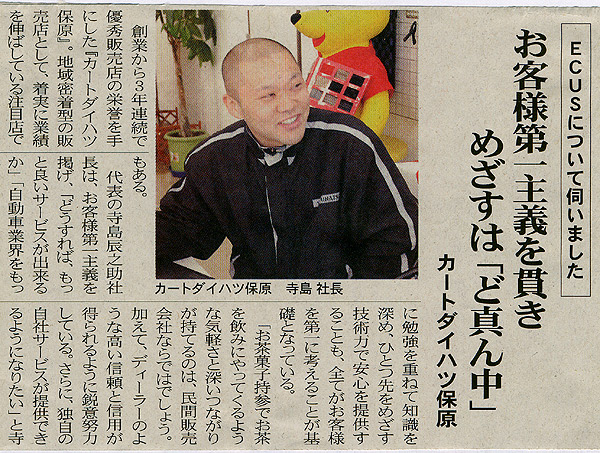 ECUSについて伺いました
お客様第一主義を貫き
めざすは「ど真ん中」
カートダイハツ保原
創業から3年連続で
優秀販売店の栄誉を手
にした『カートダイハツ
保原』。地域密着型の販
売店として、着実に業績
を伸ばしている注目店で
もある。
代表の寺島辰之助社
長は、お客様第一主義を
掲げ、「どうすれば、もっ
と良いサービスが出来る
か」「自動車業界をもっ
カートダイハツ保原 寺島 社長
に勉強を重ねて知識を
深め、ひとつ先をめざす
技術力で安心を提供す
ることも、全てがお客様
を第一に考えることが基
礎となっている。
「お茶菓子持参でお茶
を飲みにやってくるよう
な気軽さと深いつながり
が持てるのは、民間販売
会社ならではでしょう。
加えて、ディーラーのよ
うな高い信頼と信用が
得られるように鋭意努力
している。さらに、独自の
自社サービスが提供でき
るようになりたい」と寺